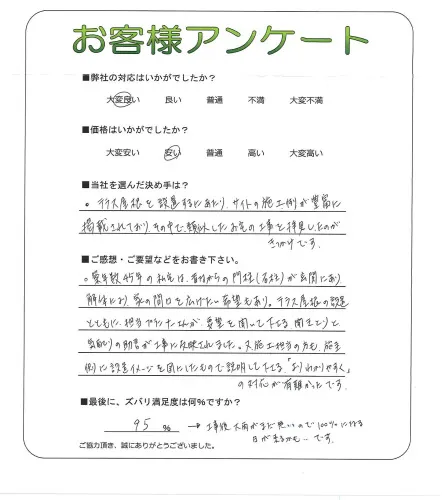 お客様アンケート
■弊社の対応はいかがでしたか?
大変良い 良い 普通 不満 大変不満
■価格はいかがでしたか?
大変安い 安い 普通 高い 大変高い
■当社を選んだ決め手は?
。テラス屋根を設置するにあたり、サイトの施工例が豊富に
掲載されており、その中で類似したお宅の工事を拝見したのが
きっかけです。
■ご感想・ご要望などをお書き下さい。
。築年数45年の私宅は、昔ながらの門柱(石柱)が玄関にあり
解体により家の間口を広げたい希望もあり。テラス屋根の設置
とともに、担当プランナーさんが要望を聞いて下さる
の助言が工事に反映されました。又施工担当の方も、施主
側に設置イメージを図にしたもので説明して下さる「よりわかりやすく」
の対応が有難かったです。
■最後に、ズバリ満足度は何%ですか?
95 % → 工事後 大雨がまだ無いので100%になる
日が来るかも…です。
ご協力頂き、誠にありがとうございました。